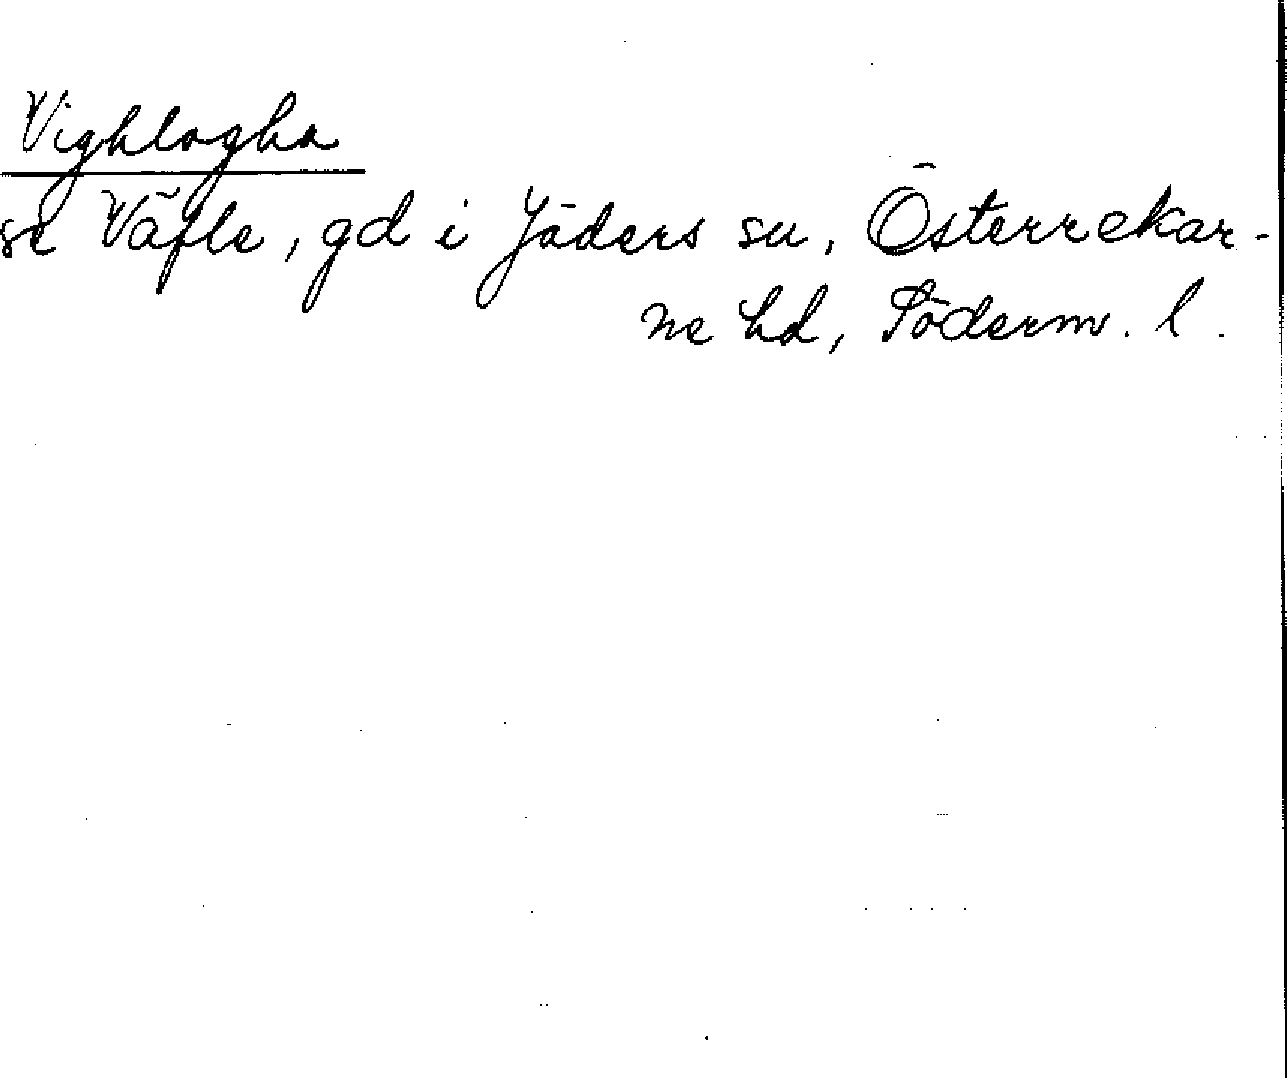 Vighlogha
se Väfle, gd i Jäders su, Österrekar-
ne hd, Söderm. l.